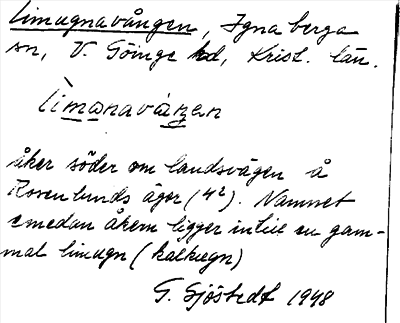 Limugnavången, Ignaberga
sn, V. Göinge hd, Krist. län.
Limanavången
åker söder om landsvägen å
Rosenlunds ägor (4²). Namnet
emedan åkern ligger intill en gam-
mal limugn (kalkugn)
G. Sjöstedt 1948